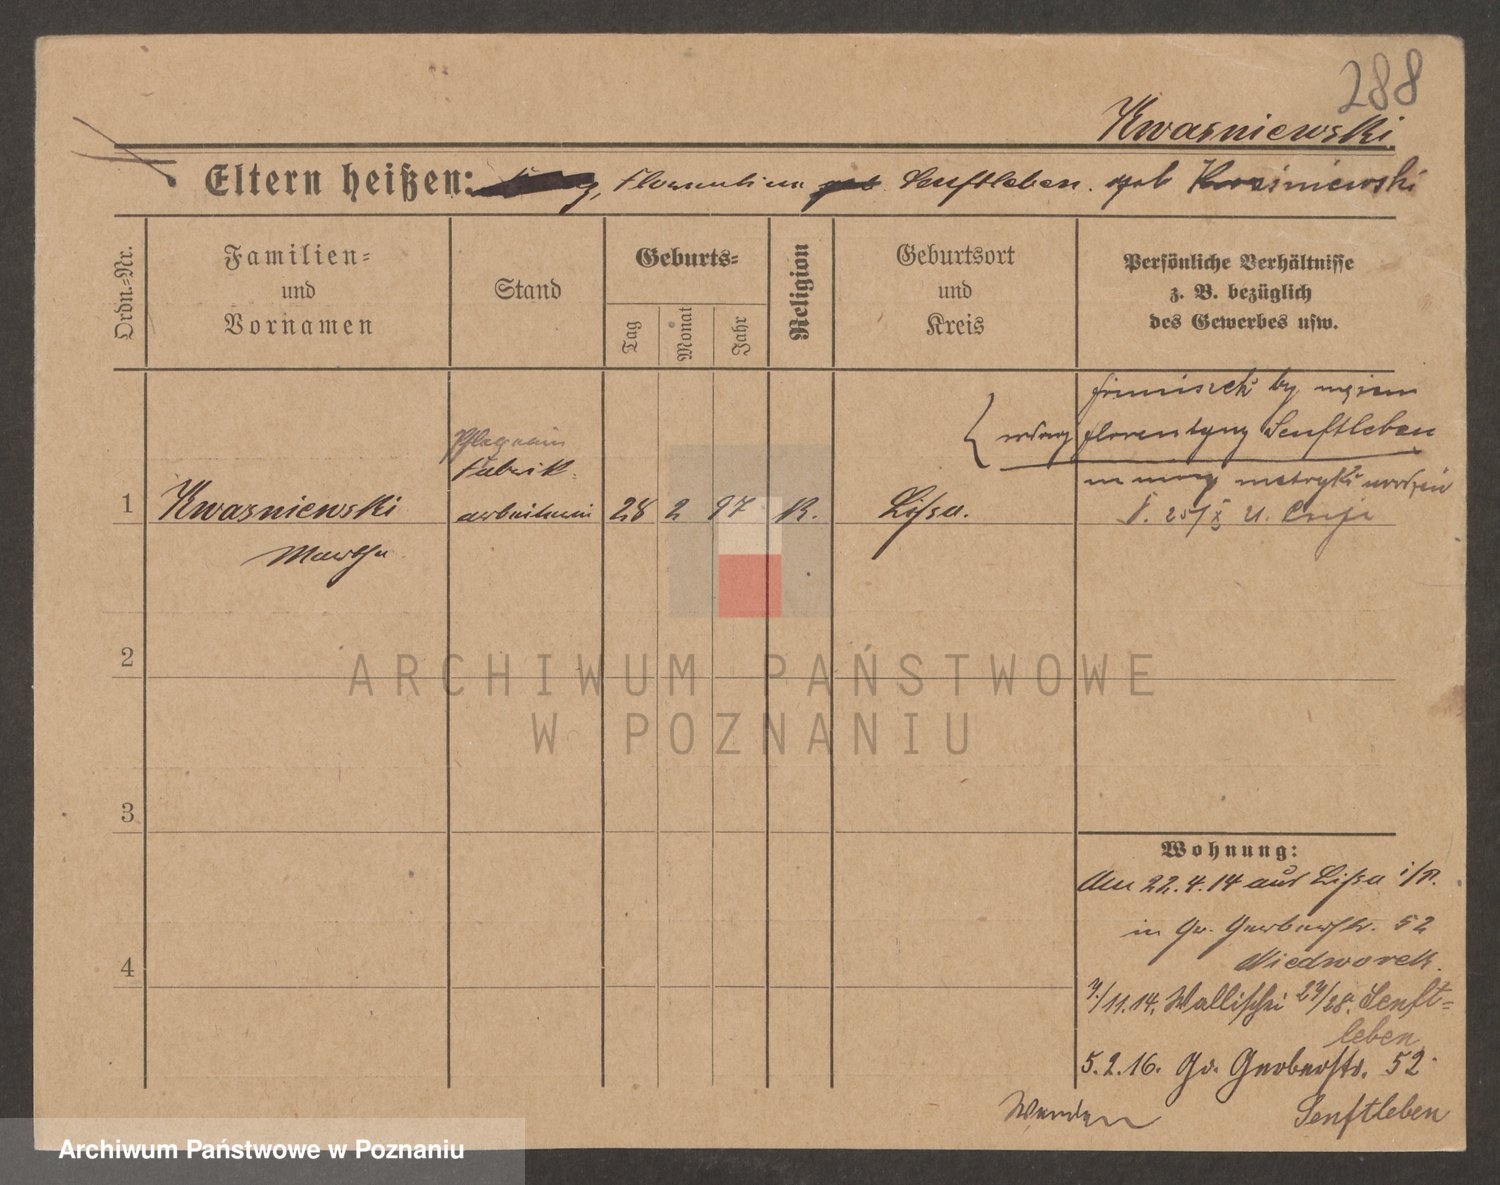 288
Kwasniewski
Eltern heißen: Florentina geb. Senftleben. geb Kwaśniewski
Ordn.-Nr.
Familien-
und
Vornamen
Stand
Geburts-
Tag
Monat
Jahr
Religion
Geburtsort
und
Kreis
Persönliche Verhältnisse
z. B. bezüglich
des Gewerbes usw.
florentyny Senftleben
metryki
Fabrik
1
Kwasniewski
arbeiterin
28
2
97
K.
Lissa.
Martha
2
3
4
Wohnung:
22.4.14 aus Lissa i/P.
in Gr. Gerberstr. 52
Niedworok
7/11.14. Wallischei 27/28. Senft-
leben
5.2.16. Gr. Gerberstr. 52
Senftleben
Wenden
ARCHIWUM PAŃSTWOWE
W POZNANIU
Archiwum Państwowe w Poznaniu